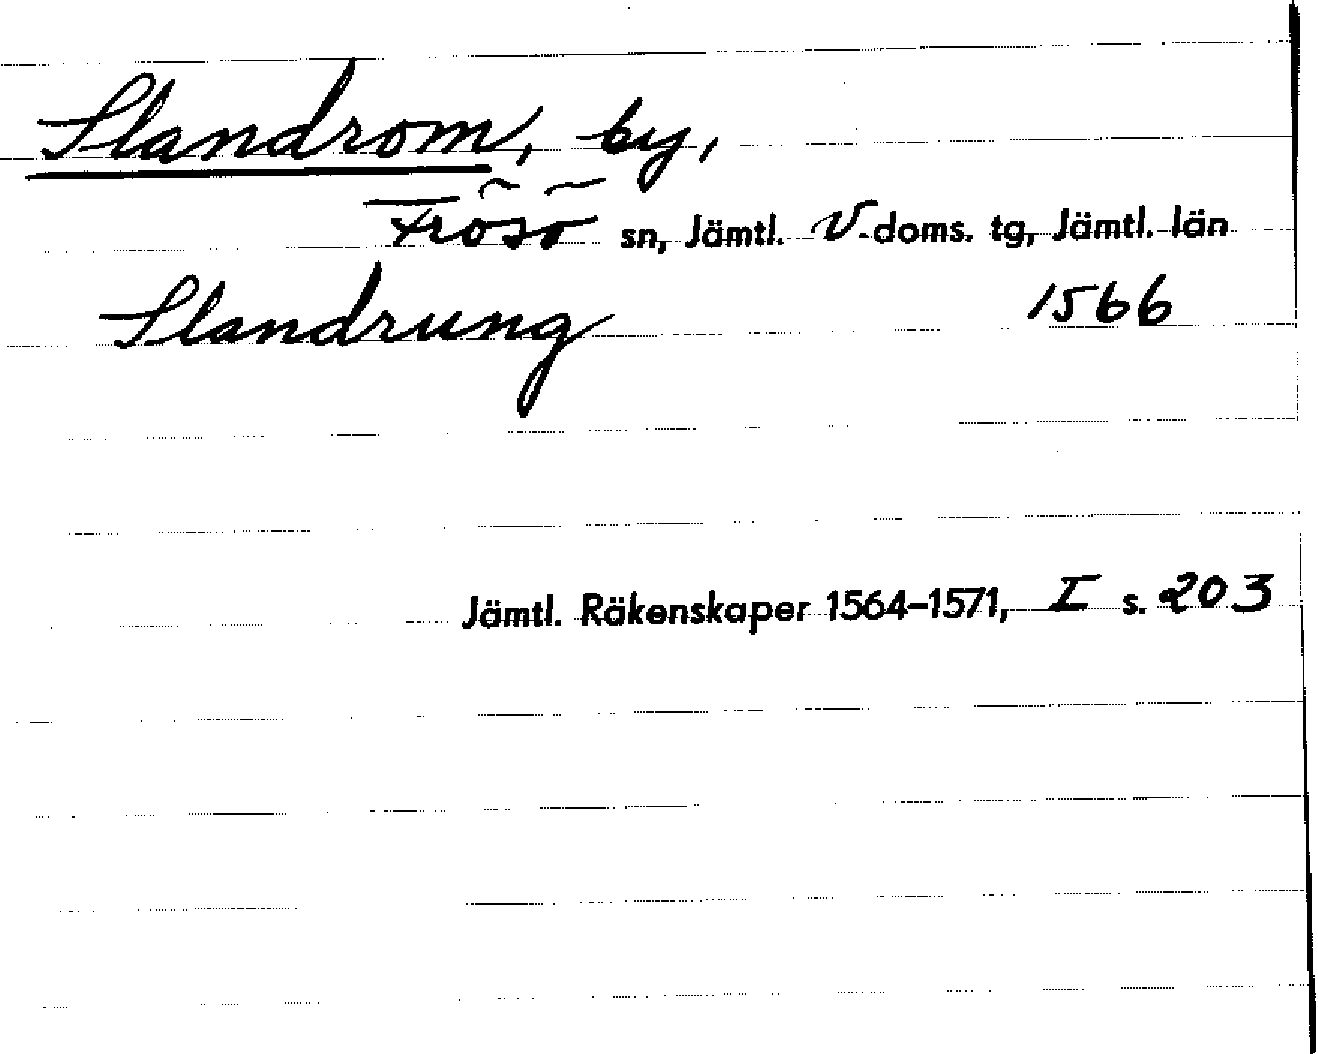 Slandrom, by,
Frösö sn, Jämtl. V-doms. tg, Jämtl. län
Slandrung 1566
Jämtl. Räkenskaper 1564–1571, I s. 203